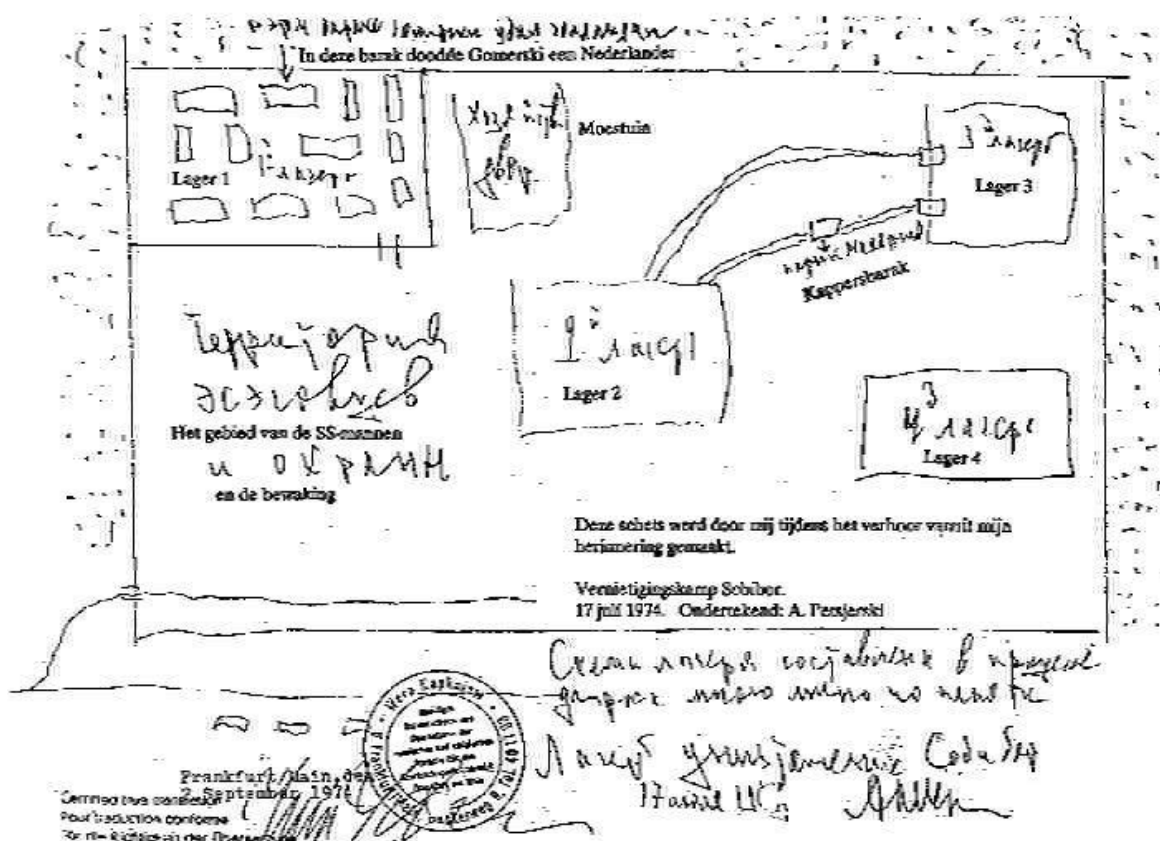 In deze barak doodde Gomerski een Nederlander
Moestuin
Lager 1
1й лагерь
3й лагерь
Lager 3
Kappersbarak
2й лагерь
Lager 2
Территория
эсэсовцев
Het gebied van de SS-mannen
и охраны
en de bewaking
лагерь
Lager 4
Deze schets werd door mij tijdens het verhoor vanuit mijn
herinnering gemaakt.
Vernietigingskamp Sobibor.
17 juli 1974. Ondertekend: A. Petsjerski
Схема лагеря составлена в процессе
допроса мною лично по памяти
Лагерь уничтожения Собибор
17
Frankfurt/Main, den
2 September 1974
Certified true translation
Pour traduction conforme